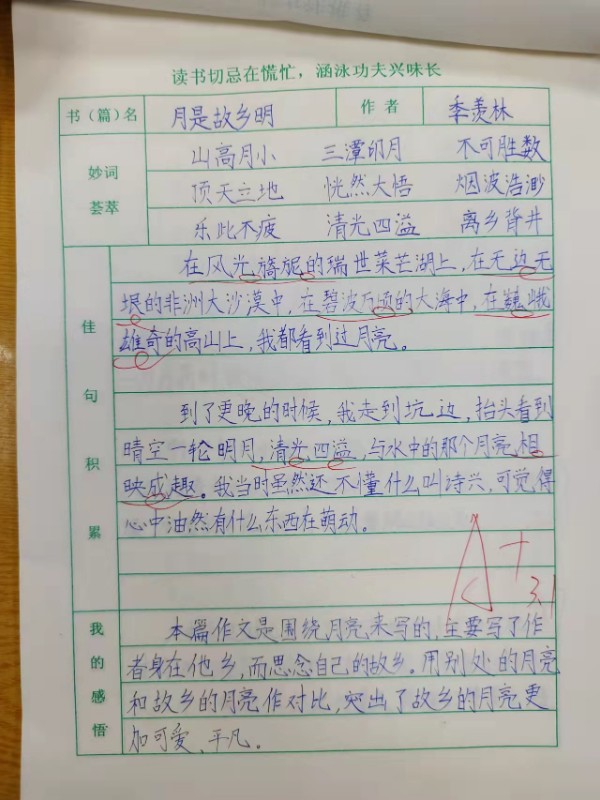 读书切忌在慌忙，涵泳功夫兴味长
书（篇）名 月是故乡明 作者 季羡林
妙词荟萃
山高月小 三潭印月 不可胜数
顶天立地 恍然大悟 烟波浩渺
乐此不疲 清光四溢 离乡背井
佳句积累
在风光旖旎的瑞世莱芒湖上，在无边无
垠的非洲大沙漠中，在碧波万顷的大海中，在巍峨
雄奇的高山上，我都看到过月亮。
到了更晚的时候，我走到坑边，抬头看到
晴空一轮明月，清光四溢，与水中的那个月亮相
映成趣。我当时虽然还不懂什么叫诗兴，可觉得
心中油然有什么东西在萌动。
A+
3.1
我的感悟
本篇作文是围绕月亮来写的，主要写了作
者身在他乡，而思念自己的故乡。用别处的月亮
和故乡的月亮作对比，突出了故乡的月亮更
加可爱、平凡。